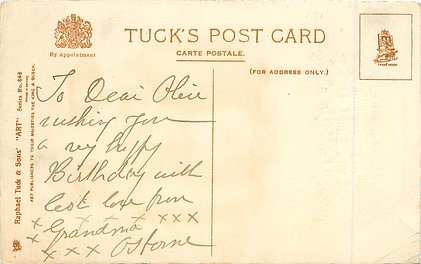 TUCK'S POST CARD
CARTE POSTALE.
By Appointment
(FOR ADDRESS ONLY.)
TRADE MARK
Raphael Tuck & Sons' "ART" Series No. 646
ART PUBLISHERS TO THEIR MAJESTIES THE KING & QUEEN.
To Dear
wishing you
a very happy
Birthday with
best love from
x x x x x x x
x Grandma
x x x x Osborne